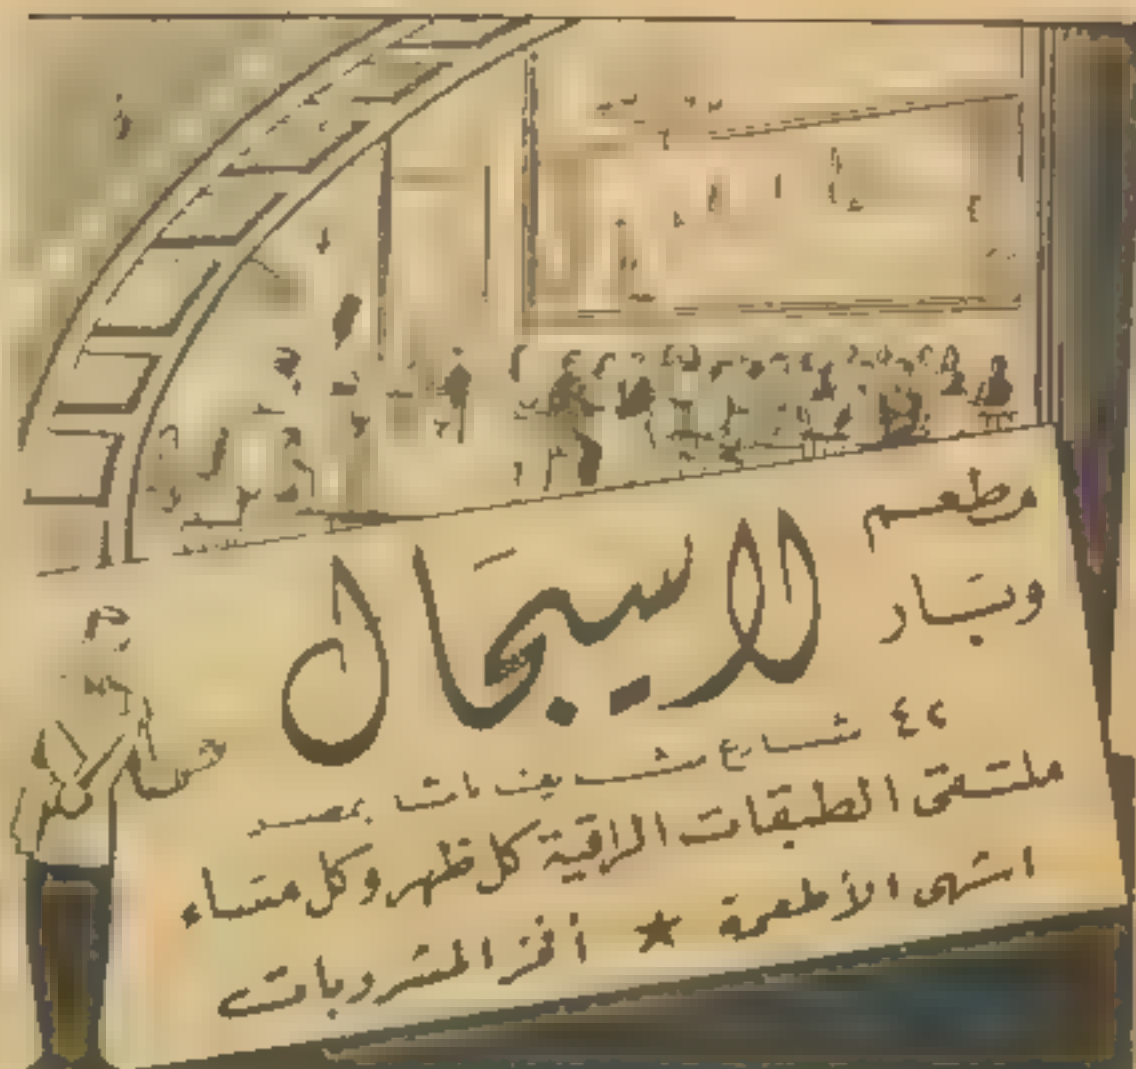 مطعم
وبار
لاسيجال
٤٢ شارع شريف باشا بمصر
ملتقى الطبقات الراقية كل ظهر وكل مساء
اشهى الأطعمة ★ أفخر المشروبات